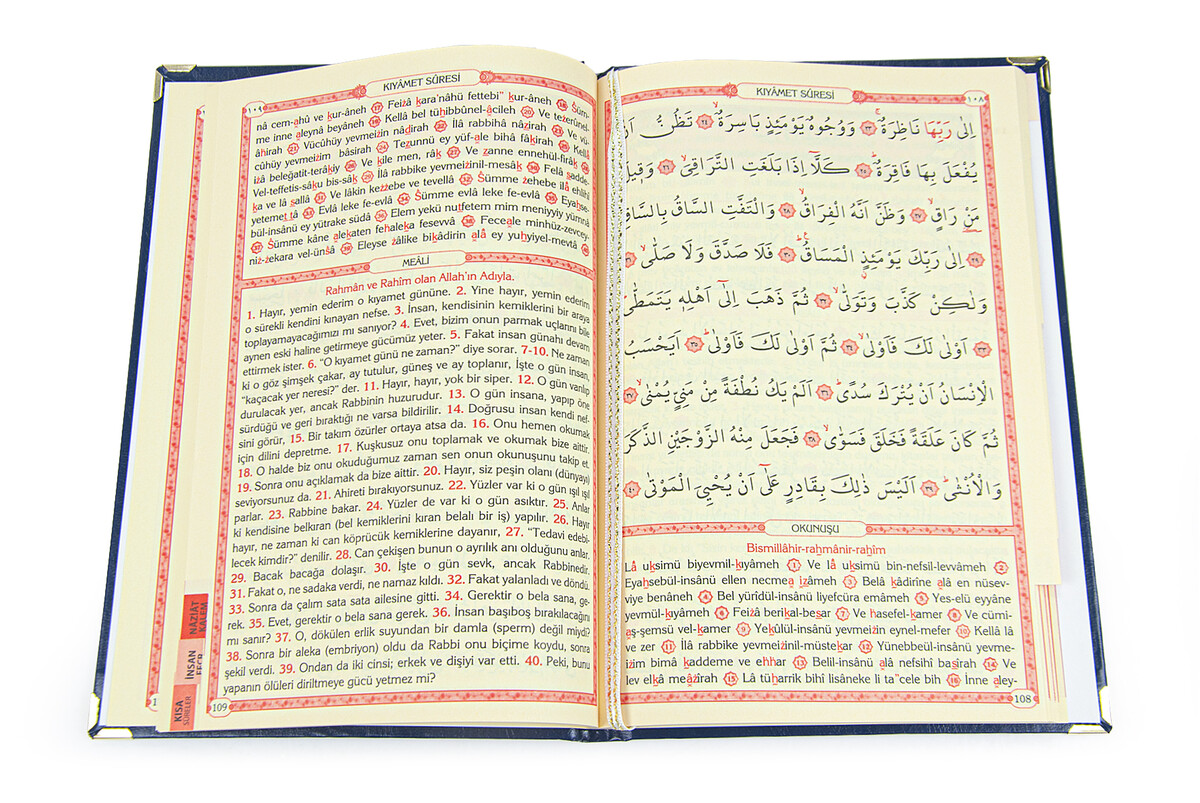 KIYÂMET SÛRESİ
١٠٨
اِلٰى رَبِّهَا نَاظِرَةٌۚ ﴿٢٣﴾ وَوُجُوهٌ يَوْمَئِذٍ بَاسِرَةٌۙ ﴿٢٤﴾ تَظُنُّ اَنْ
يُفْعَلَ بِهَا فَاقِرَةٌۜ ﴿٢٥﴾ كَلَّٓا اِذَا بَلَغَتِ التَّرَاقِيَۙ ﴿٢٦﴾ وَقٖيلَ
مَنْ رَاقٍۙ ﴿٢٧﴾ وَظَنَّ اَنَّهُ الْفِرَاقُۙ ﴿٢٨﴾ وَالْتَفَّتِ السَّاقُ بِالسَّاقِۙ
﴿٢٩﴾ اِلٰى رَبِّكَ يَوْمَئِذٍ الْمَسَاقُۜ ﴿٣٠﴾ فَلَا صَدَّقَ وَلَا صَلّٰىۙ
وَلٰكِنْ كَذَّبَ وَتَوَلّٰىۙ ﴿٣٢﴾ ثُمَّ ذَهَبَ اِلٰٓى اَهْلِهٖ يَتَمَطّٰىۜ
﴿٣٣﴾ اَوْلٰى لَكَ فَاَوْلٰىۙ ﴿٣٤﴾ ثُمَّ اَوْلٰى لَكَ فَاَوْلٰىۜ ﴿٣٥﴾ اَيَحْسَبُ
الْاِنْسَانُ اَنْ يُتْرَكَ سُدًىۜ ﴿٣٦﴾ اَلَمْ يَكُ نُطْفَةً مِنْ مَنِيٍّ يُمْنٰىۙ ﴿٣٧﴾
ثُمَّ كَانَ عَلَقَةً فَخَلَقَ فَسَوّٰىۙ ﴿٣٨﴾ فَجَعَلَ مِنْهُ الزَّوْجَيْنِ الذَّكَرَ
وَالْاُنْثٰىۜ ﴿٣٩﴾ اَلَيْسَ ذٰلِكَ بِقَادِرٍ عَلٰٓى اَنْ يُحْيِيَ الْمَوْتٰى ﴿٤٠﴾
OKUNUŞU
Bismillâhir-rahmânir-rahîm
Lâ uksimü biyevmil-kıyâmeh 1 Ve lâ uksimü bin-nefsil-levvâmeh 2
Eyahsebül-insânü ellen necmea izâmeh 3 Belâ kâdirîne alâ en nüsev-
viye benâneh 4 Bel yürîdül-insânü liyefcüra emâmeh 5 Yes-elü eyyâne
yevmül-kıyâmeh 6 Feizâ berikal-besar 7 Ve hasefel-kamer 8 Ve cümi-
aş-şemsü vel-kamer 9 Yekûlül-insânü yevmeizin eynel-mefer 10 Kellâ lâ
ve zer 11 İlâ rabbike yevmeizinil-müstekar 12 Yünebbeül-insânü yevme-
izim bimâ kaddeme ve ehhar 13 Belil-insânü alâ nefsihî basîrah 14 Ve
lev elkâ meâzîrah 15 Lâ tüharrik bihî lisâneke li ta"cele bih 16 İnne aley-
108
KIYÂMET SÛRESİ
١٠٩
nâ cem-ahû ve kur-âneh 17 Feizâ kara'nâhü fettebi" kur-âneh 18 Süm-
me inne aleynâ beyâneh 19 Kellâ bel tühibbûnel-âcileh 20 Ve tezerûnel-
âhirah 21 Vücûhüy yevmeizin nâdirah 22 İlâ rabbihâ nâzirah 23 Ve vü-
cûhüy yevmeizim bâsirah 24 Tezunnü ey yüf-ale bihâ fâkirah 25 Kellâ
izâ beleğatit-terâkıy 26 Ve kîle men, râk 27 Ve zanne ennehül-firâk 28
Vel-teffetis-sâku bis-sâk 29 İlâ rabbike yevmeizinil-mesâk 30 Felâ sadde-
ka ve lâ sallâ 31 Ve lâkin kezzebe ve tevellâ 32 Sümme zehebe ilâ ehlihî
yetemet tâ 33 Evlâ leke fe-evlâ 34 Sümme evlâ leke fe-evlâ 35 Eyahse-
bül-insânü ey yütrake südâ 36 Elem yekü nutfetem mim meniyyiy yümnâ
37 Sümme kâne alekaten fehaleka fesevvâ 38 Feceale minhüz-zevcey-
niz-zekara vel-ünsâ 39 Eleyse zâlike bikâdirin alâ ey yuhyiyel-mevtâ 40
MEÂLİ
Rahmân ve Rahîm olan Allah'ın Adıyla.
1. Hayır, yemin ederim o kıyamet gününe. 2. Yine hayır, yemin ederim
o sürekli kendini kınayan nefse. 3. İnsan, kendisinin kemiklerini bir araya
toplayamayacağımızı mı sanıyor? 4. Evet, bizim onun parmak uçlarını bile
aynen eski haline getirmeye gücümüz yeter. 5. Fakat insan günahı devam
ettirmek ister. 6. "O kıyamet günü ne zaman?" diye sorar. 7-10. Ne zaman
ki o göz şimşek çakar, ay tutulur, güneş ve ay toplanır, İşte o gün insan,
"kaçacak yer neresi?" der. 11. Hayır, hayır, yok bir siper. 12. O gün varılıp
durulacak yer, ancak Rabbinin huzurudur. 13. O gün insana, yapıp öne
sürdüğü ve geri bıraktığı ne varsa bildirilir. 14. Doğrusu insan kendi nef-
sini görür, 15. Bir takım özürler ortaya atsa da. 16. Onu hemen okumak
için dilini depretme. 17. Kuşkusuz onu toplamak ve okumak bize aittir.
18. O halde biz onu okuduğumuz zaman sen onun okunuşunu takip et.
19. Sonra onu açıklamak da bize aittir. 20. Hayır, siz peşin olanı (dünyayı)
seviyorsunuz da. 21. Ahireti bırakıyorsunuz. 22. Yüzler var ki o gün ışıl ışıl
parlar. 23. Rabbine bakar. 24. Yüzler de var ki o gün asıktır. 25. Anlar
ki kendisine belkıran (bel kemiklerini kıran belalı bir iş) yapılır. 26. Hayır
hayır, ne zaman ki can köprücük kemiklerine dayanır, 27. "Tedavi edebi-
lecek kimdir?" denilir. 28. Can çekişen bunun o ayrılık anı olduğunu anlar.
29. Bacak bacağa dolaşır. 30. İşte o gün sevk, ancak Rabbinedir.
31. Fakat o, ne sadaka verdi, ne namaz kıldı. 32. Fakat yalanladı ve döndü.
33. Sonra da çalım sata sata ailesine gitti. 34. Gerektir o bela sana, ge-
rek. 35. Evet, gerektir o bela sana gerek. 36. İnsan başıboş bırakılacağını
mı sanır? 37. O, dökülen erlik suyundan bir damla (sperm) değil miydi?
38. Sonra bir aleka (embriyo) oldu da Rabbi onu biçime koydu, sonra
şekil verdi. 39. Ondan da iki cinsi; erkek ve dişiyi var etti. 40. Peki, bunu
yapanın ölüleri diriltmeye gücü yetmez mi?
109
NAZİÂT
KALEM
İNSAN
FECR
KISA
SÛRELER